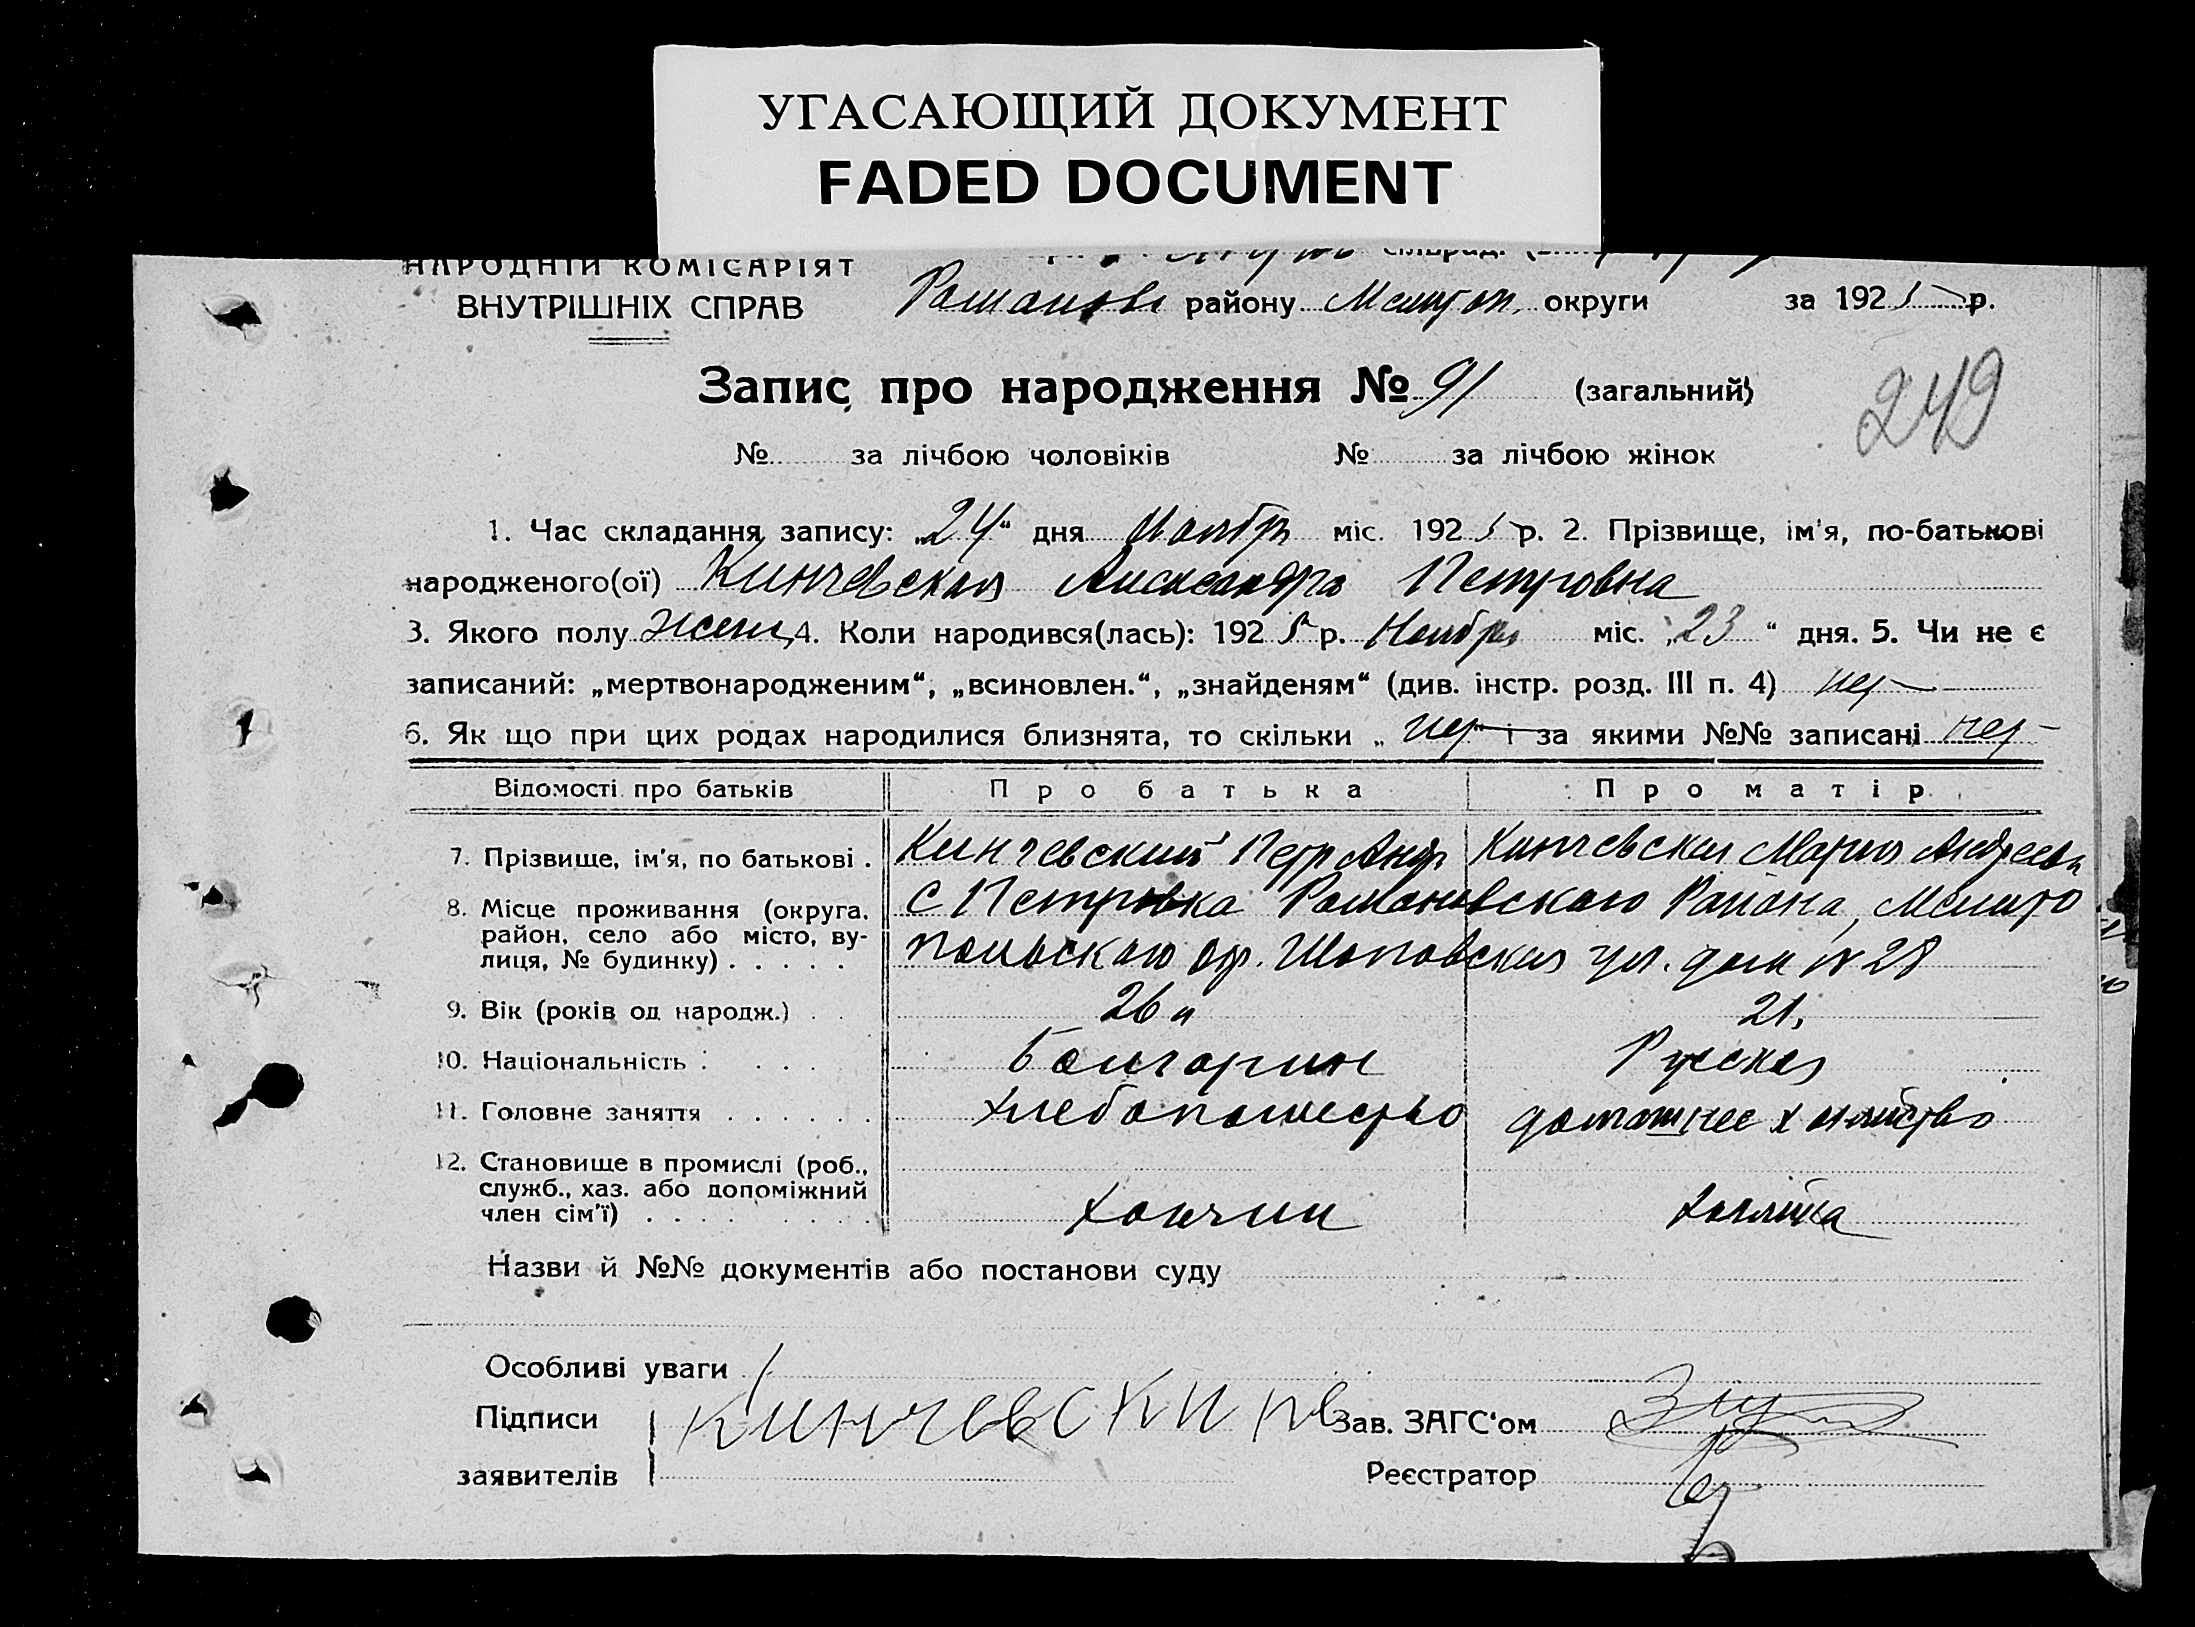 УГАСАЮЩИЙ ДОКУМЕНТ
FADED DOCUMENT
НАРОДНІЙ КОМІСАРІЯТ
ВНУТРІШНІХ СПРАВ Романовс району Мелитоп. округи за 1925 р.
Запис про народження № 91 (загальний)
249
№ за лічбою чоловіків № за лічбою жінок
1. Час складання запису: „24“ дня Ноября міс. 1925 р. 2. Прізвище, ім'я, по-батькові
народженого(ої) Кинчевская Александра Петровна
3. Якого полу женс 4. Коли народився(лась): 1925 р. Ноября міс. „23“ дня. 5. Чи не є
записаний: „мертвонародженим“, „всиновлен.“, „знайденям“ (див. інстр. розд. III п. 4) нет
6. Як що при цих родах народилися близнята, то скільки „нет“ і за якими №№ записані нет
Відомості про батьків Про батька Про матір
7. Прізвище, ім'я, по батькові . Кинчевский Петр Андр Кинчевская Мария Андреевн
8. Місце проживання (округа, С Петровка Романовскаго Района, Мелито
район, село або місто, ву-
лиця, № будинку) . . . . . польскаго окр. Шоповская ул. дом № 28
9. Вік (років од народж.) . . 26 21
10. Національність . . . . Болгарин Русская
11. Головне заняття . . . . . . хлебопашество домашнее хозяйство
12. Становище в промислі (роб.,
служб., хаз. або допоміжний
член сім'ї) . . . . . . . . хозяйка
Назви й №№ документів або постанови суду
Особливі уваги
Підписи Кинчевский Зав. ЗАГС'ом
заявителів Реєстратор